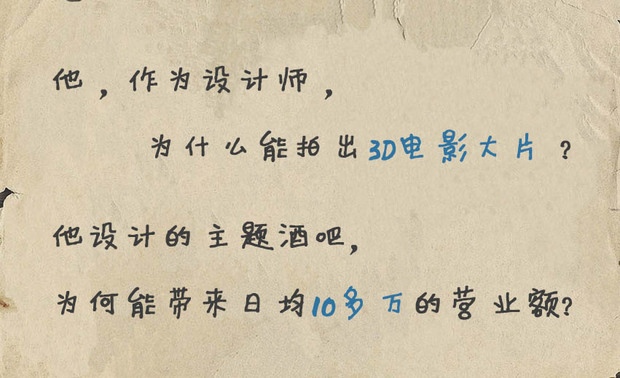 他，作为设计师，
为什么能拍出3D电影大片？
他设计的主题酒吧，
为何能带来日均10多万的营业额？